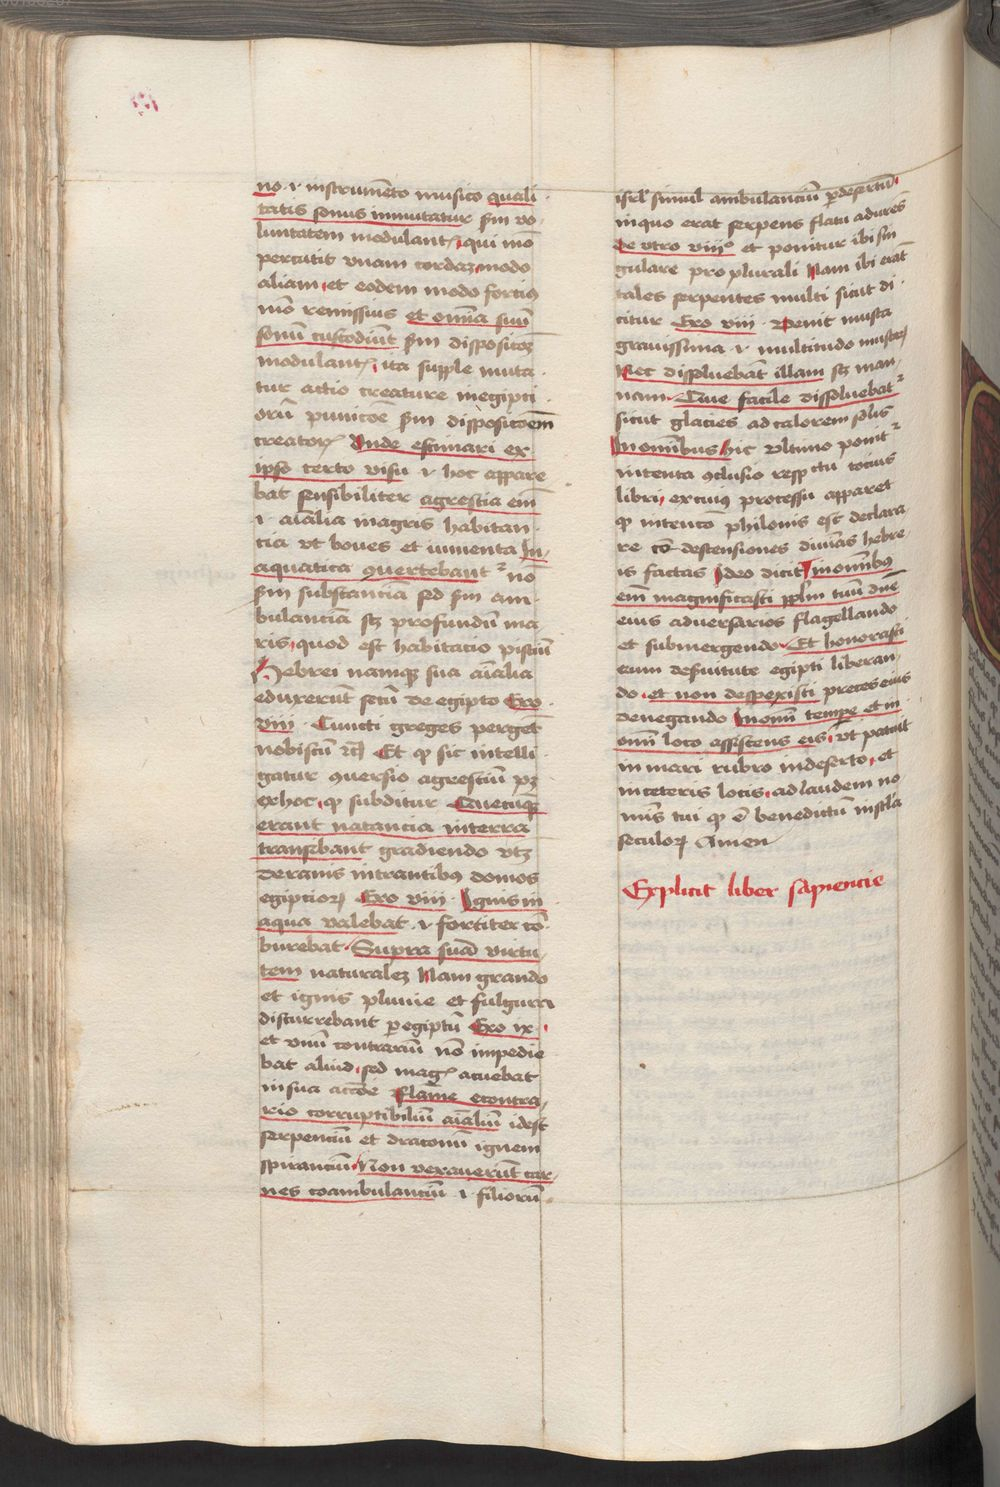 no · i · instrumēto musico quali
tatis sonus immutatur s̄m vo
luntatem modulantꝭ, qui mō
percutit vnam cordaꝫ modo
aliam, et eodem modo fortius
mō remissius et omīa suū
sonū custodiūt s̄m dispositōꝫ
modulantꝭ, ita supple muta
tur actio creature in egipti
orū punicōe s̄m dispositōem
creatorꝭ Vnde estimari ex
ipso certo visu · i · hoc appare
bat sensibiliter agrestia eīm
· i · aīalia in agris habitan
tia vt boues et iumenta In
aquatica ꝯuertebantᷣ nō
s̄m substanciā sed s̄m am
bulanciā sꝫ profundū ma
ris, quod est habitacio pisciū
Hebrei namqꝫ sua aīalia
eduxerūt secū de egipto Exo
viii · Cuncti greges pergēt
nobiscū ⁊c̄ Et ꝙ sic intelli
gatur ꝯuersio agrestiū pꝫ
ex hoc, ꝙ subditur Quecūqꝫ
erant natancia in terra
transibant gradiendo vtꝫ
de ranis intrantibꝰ domos
egiptiorꝝ Exo viii · Ignis in
aqua valebat · i · fortiter cō
burebat · Supra suā virtu
tem naturaleꝫ Nam grando
et ignis pluuie et fulgura
discurrebant ꝑ egiptū Exo ix ·
et vnū contrariū nō impedie
bat aliud, sed magꝭ acuebat
in sua actōe Flāme econtra
rio corruptibiliū aīaliū idest
serpenciū et draconū ignem
spiranciū, Non vexauerūt car
nes coambulanciū · i · filiorū
isrl̄ simul ambulanciū ꝑ desertū,
in quo erat serpens flatu adurēs
de vtro viiiº et ponitur ibi sin
gulare pro plurali Nam ibi erāt
tales serpentes multi sicut di
citur Exo viii · Venit musca
grauissima · i · multitudo muscarꝝ
Nec dissoluebāt illam sꝫ man
nam · Que facile dissoluebatᷣ
sicut glacies ad calorem solis
In omnibus hic vltimo ponitᷣ
intenta ꝯclusio respectu tocius
libri, ex cuius processu apparet
ꝙ intencō philonis est declara
re cō descensiones diuīas hebre
is factas Ideo dicit In omībꝰ
eīm magnificasti ppl̄m tuū dn̄e
eius aduersarios flagellando
et submergendo, Et honorasti
eum de suitute egipti liberan
do, et non despexisti preces eius
denegando In omī tempe et in
omī loco assistens eis, vt patuit
in mari rubro in deserto, et
in ceteris locis, ad laudem no
mīs tui ꝙ ē benedictū in scl̄a
seculorꝝ Amen
Explicit liber sapiencie